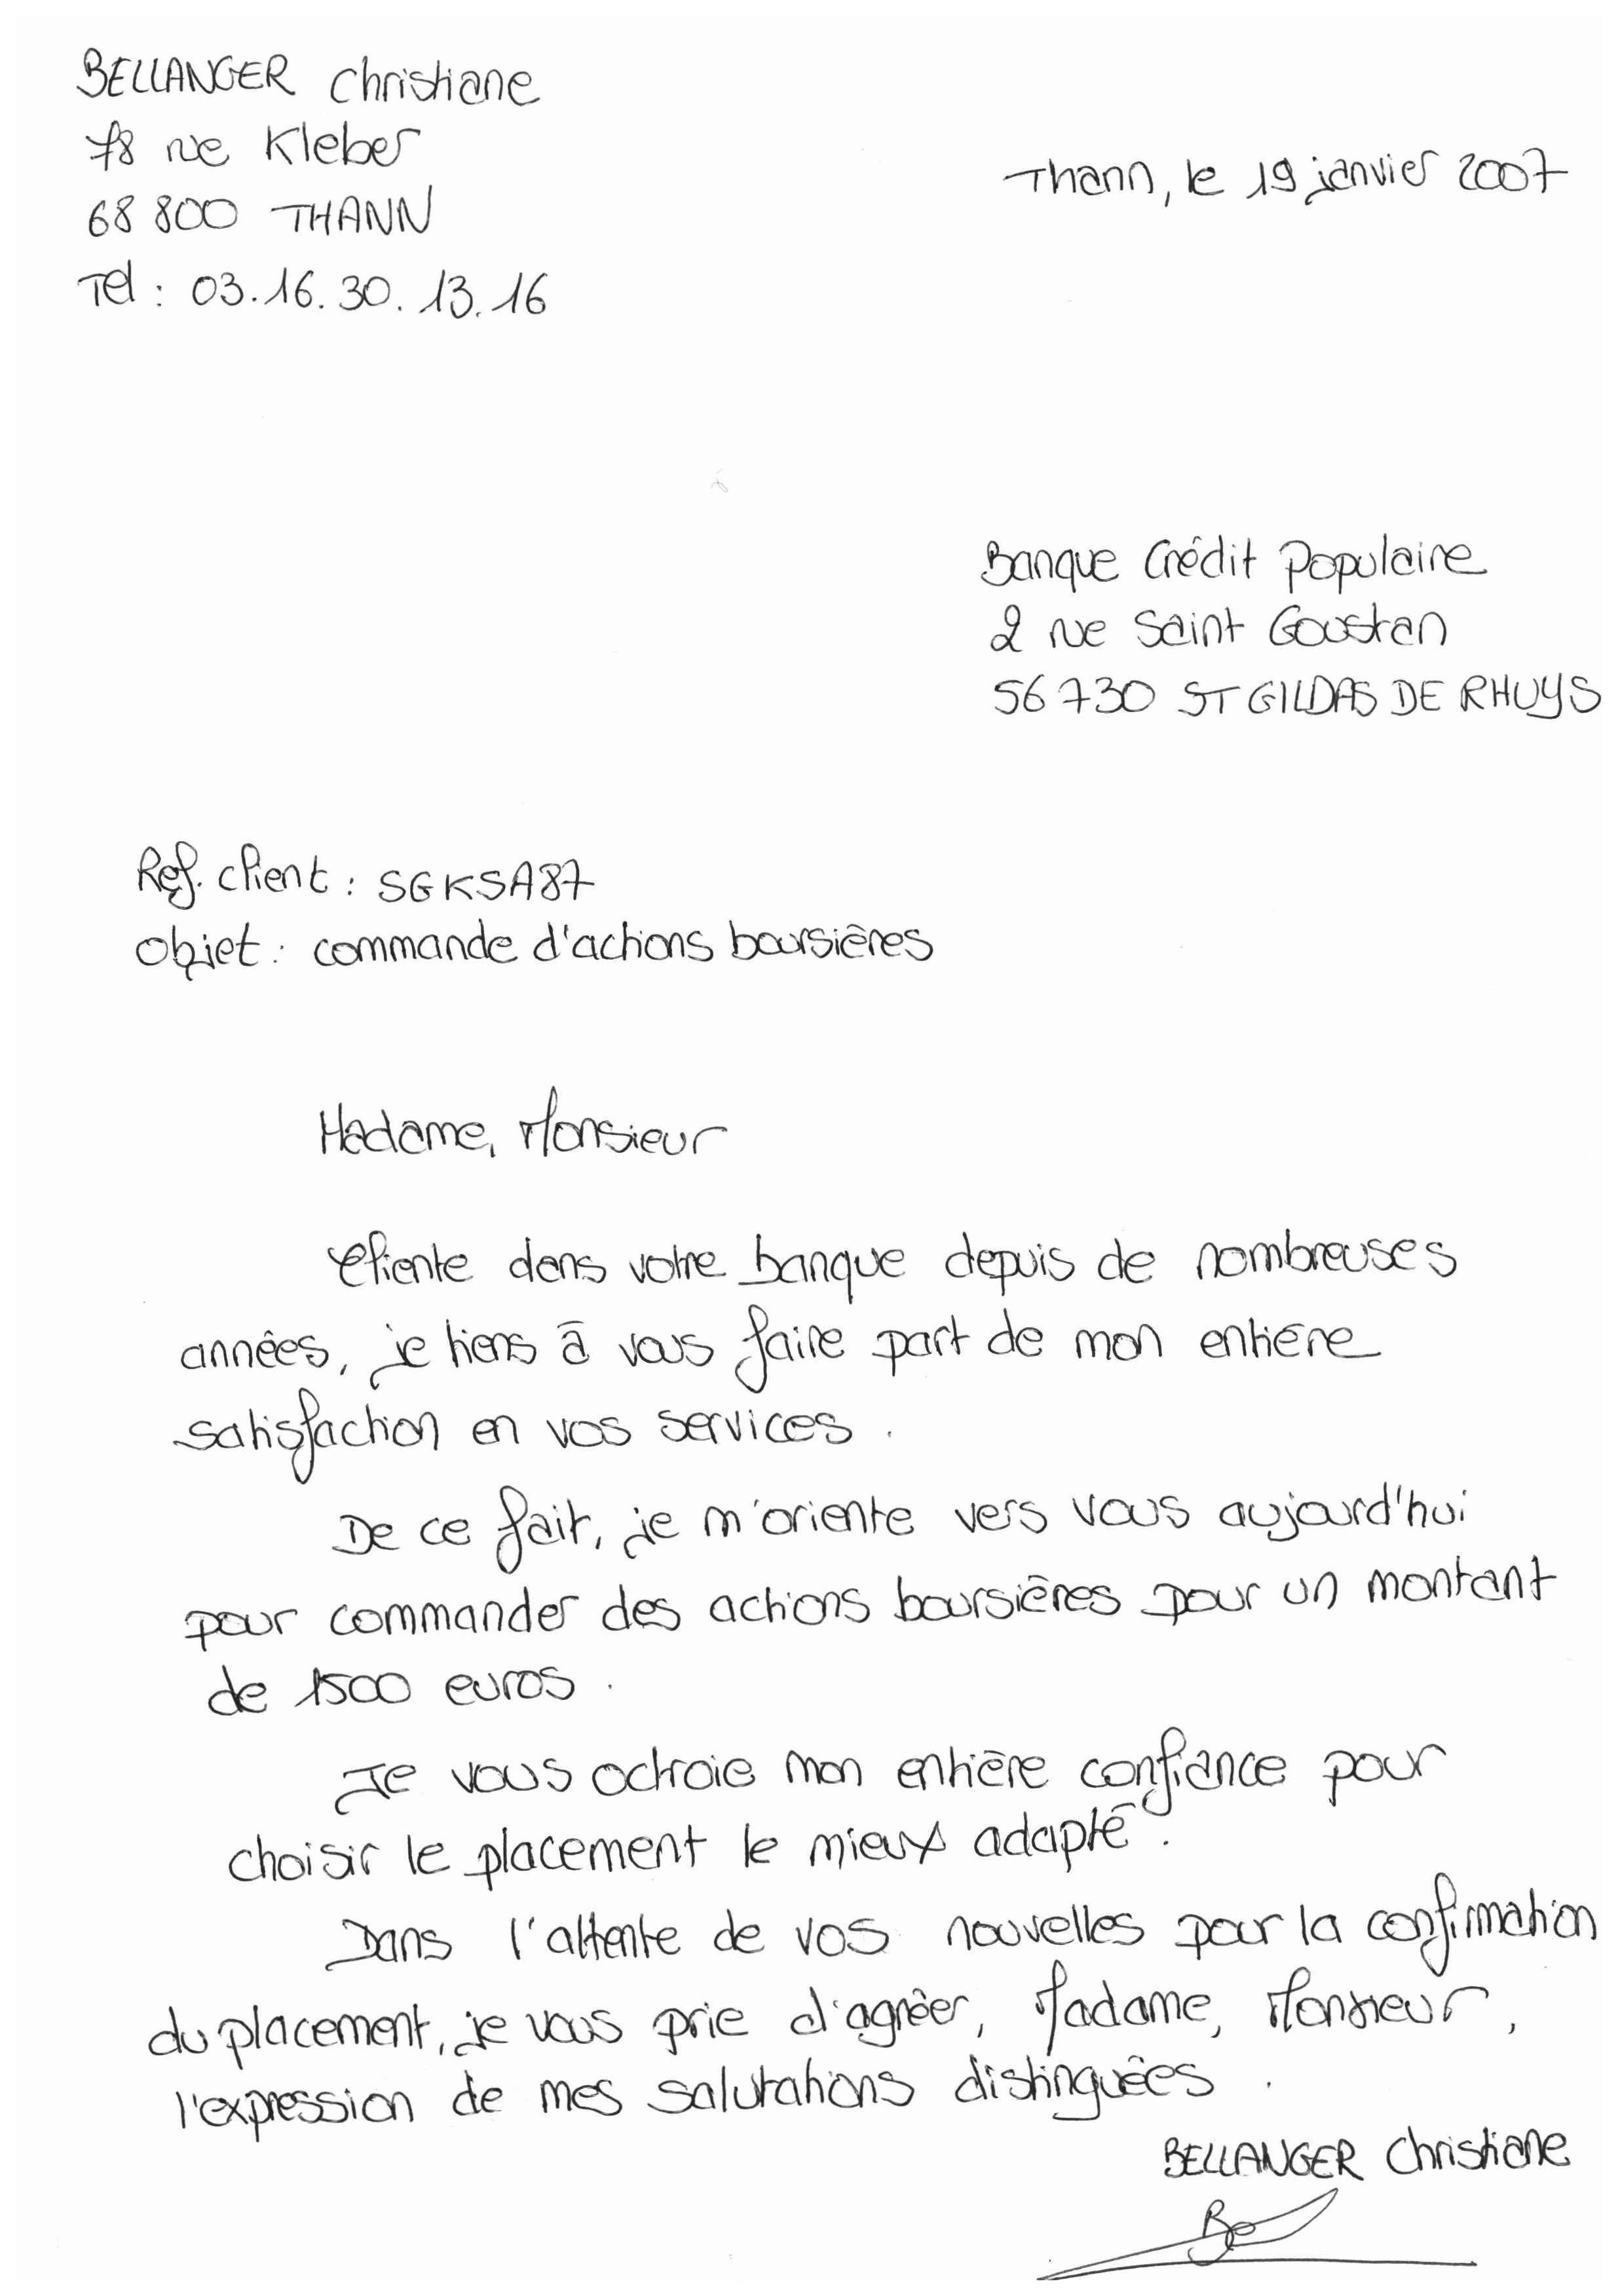 BELLANGER Christiane
78 rue Kleber
68 800 THANN
Tel : 03.16.30.13.16
Thann, le 19 janvier 2007
Banque Crédit Populaire
2 rue Saint Goustan
56 730 ST GILDAS DE RHUYS
Ref. client : SGKSA87
Objet : commande d'actions boursières
Madame, Monsieur
Cliente dans votre banque depuis de nombreuses
années, je tiens à vous faire part de mon entière
satisfaction en vos services.
De ce fait, je m'oriente vers vous aujourd'hui
pour commander des actions boursières pour un montant
de 1500 euros.
Je vous octroie mon entière confiance pour
choisir le placement le mieux adapté.
Dans l'attente de vos nouvelles pour la confirmation
du placement, je vous prie d'agréer, Madame, Monsieur,
l'expression de mes salutations distinguées.
BELLANGER Christiane
Be